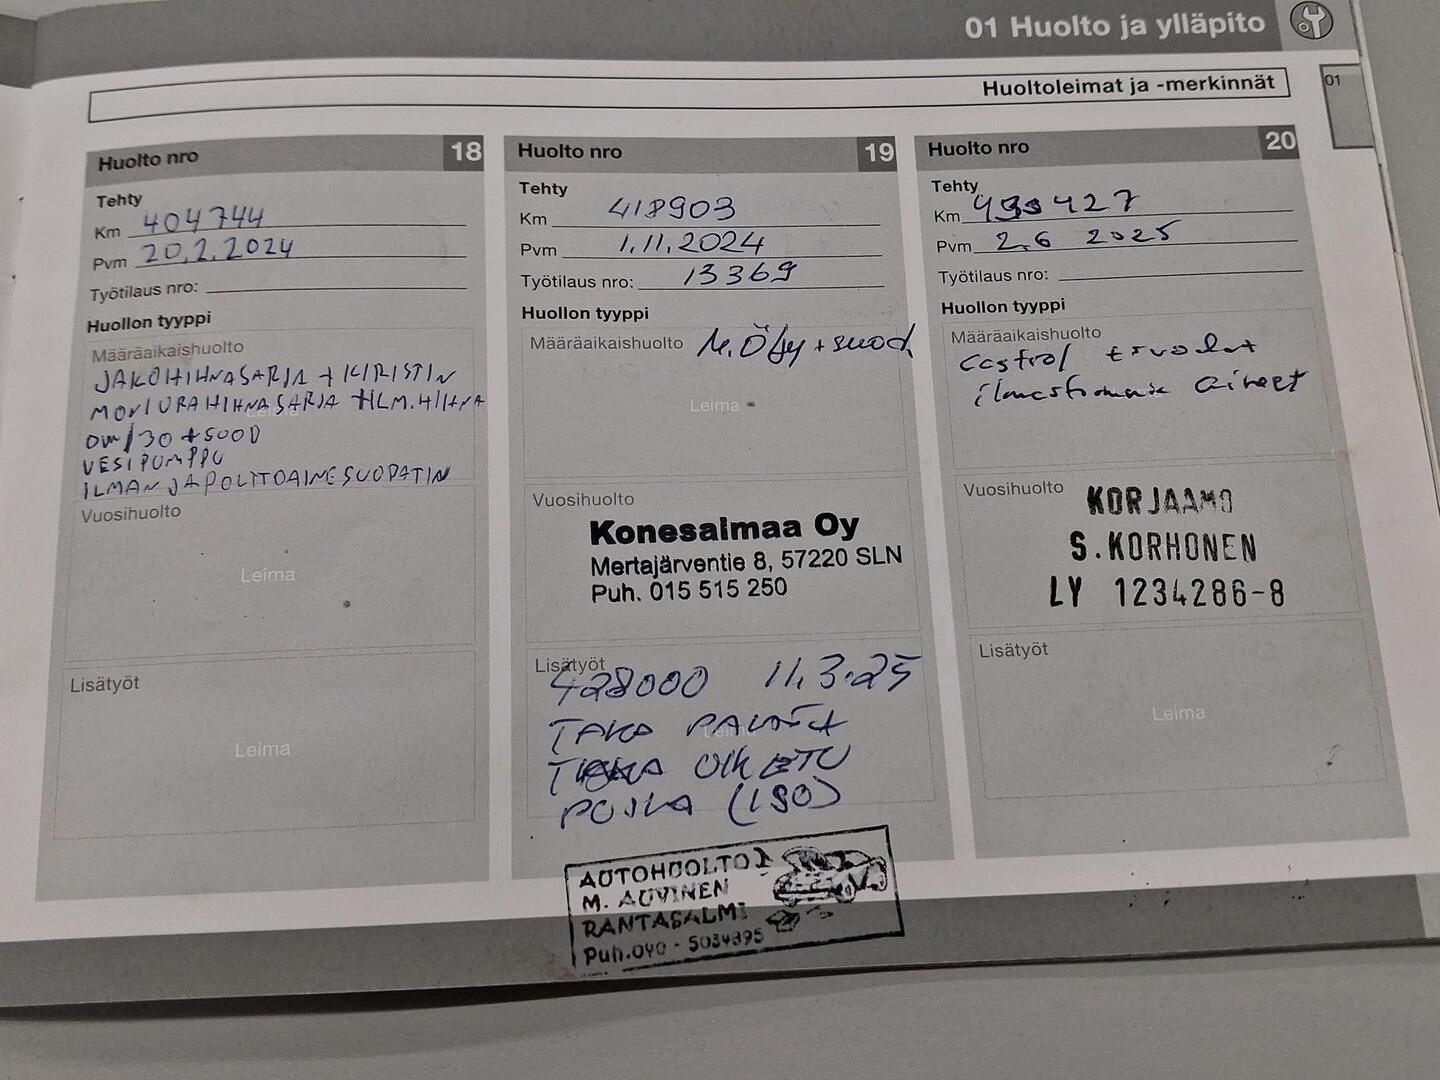 01 Huolto ja ylläpito
Huoltoleimat ja -merkinnät
01
Huolto nro 18
Tehty
Km 404744
Pvm 20.2.2024
Työtilaus nro:
Huollon tyyppi
Määräaikaishuolto
JAKOHIHNASARJA + KIRISTIN
MONIURAHIHNASARJA + ILM.HIHNA
0W/30 + SUOD
VESIPUMPPU
ILMAN JA POLTTOAINESUODATIN
Leima
Vuosihuolto
Leima
Lisätyöt
Leima
Huolto nro 19
Tehty
Km 418903
Pvm 1.11.2024
Työtilaus nro: 13369
Huollon tyyppi
Määräaikaishuolto M.Öljy + suod.
Leima
Vuosihuolto
Konesaimaa Oy
Mertajärventie 8, 57220 SLN
Puh. 015 515 250
Lisätyöt
428000 11.3.25
TAKA
TAKA OIK ETU
(ISO)
Leima
AUTOHUOLTO
M. AUVINEN
RANTASALMI
Puh. 040 - 5034895
Huolto nro 20
Tehty
Km 427
Pvm 2.6 2025
Työtilaus nro:
Huollon tyyppi
Määräaikaishuolto
Castrol
ilmastoinnin aineet
Vuosihuolto
KORJAAMO
S.KORHONEN
LY 1234286-8
Lisätyöt
Leima